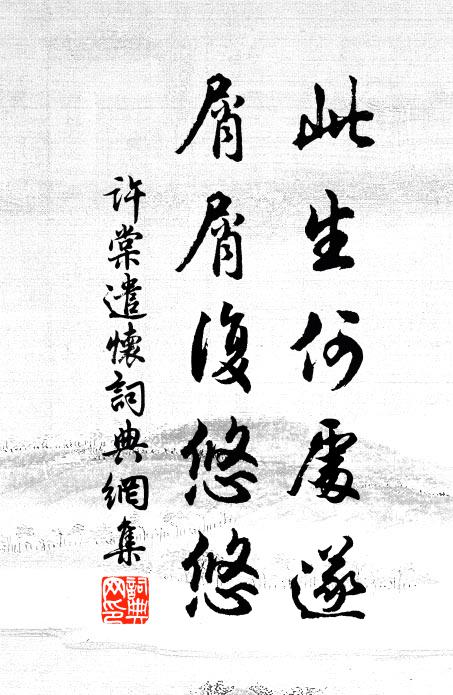 屑屑復悠悠
此生何處遂
許棠遣懷詞典網集
詞典網印